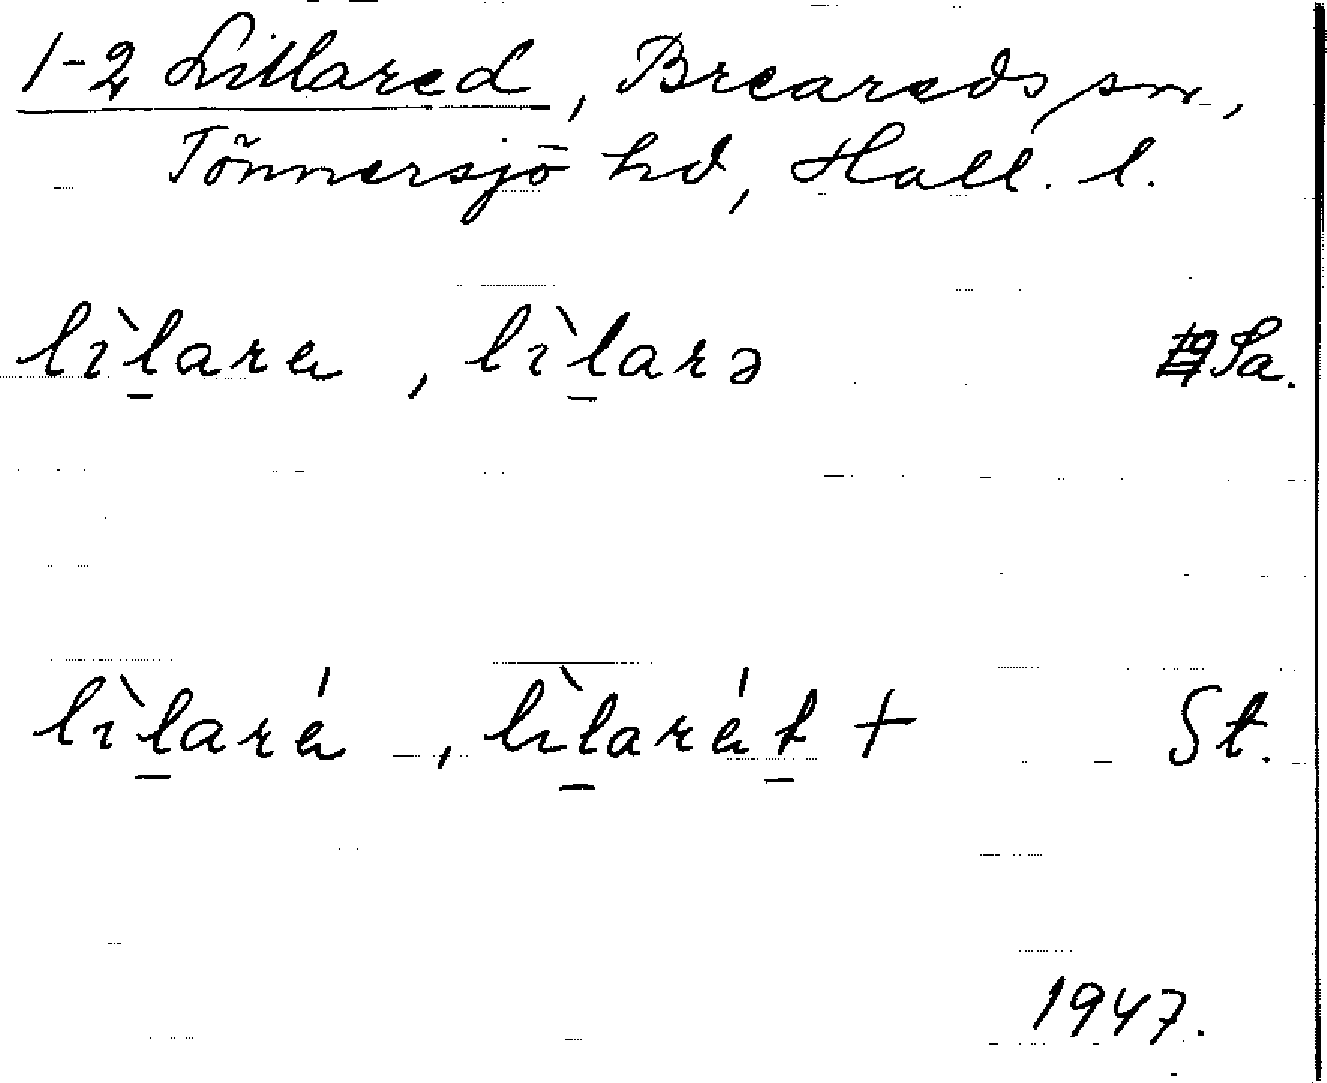 1-2 Lillared, Breareds sn,
Tönnersjö hd, Hall. l.
lìl̲ara, lìl̲arə Sa.
lìl̲aŕa, lìl̲aŕat̲ + St.
1947.